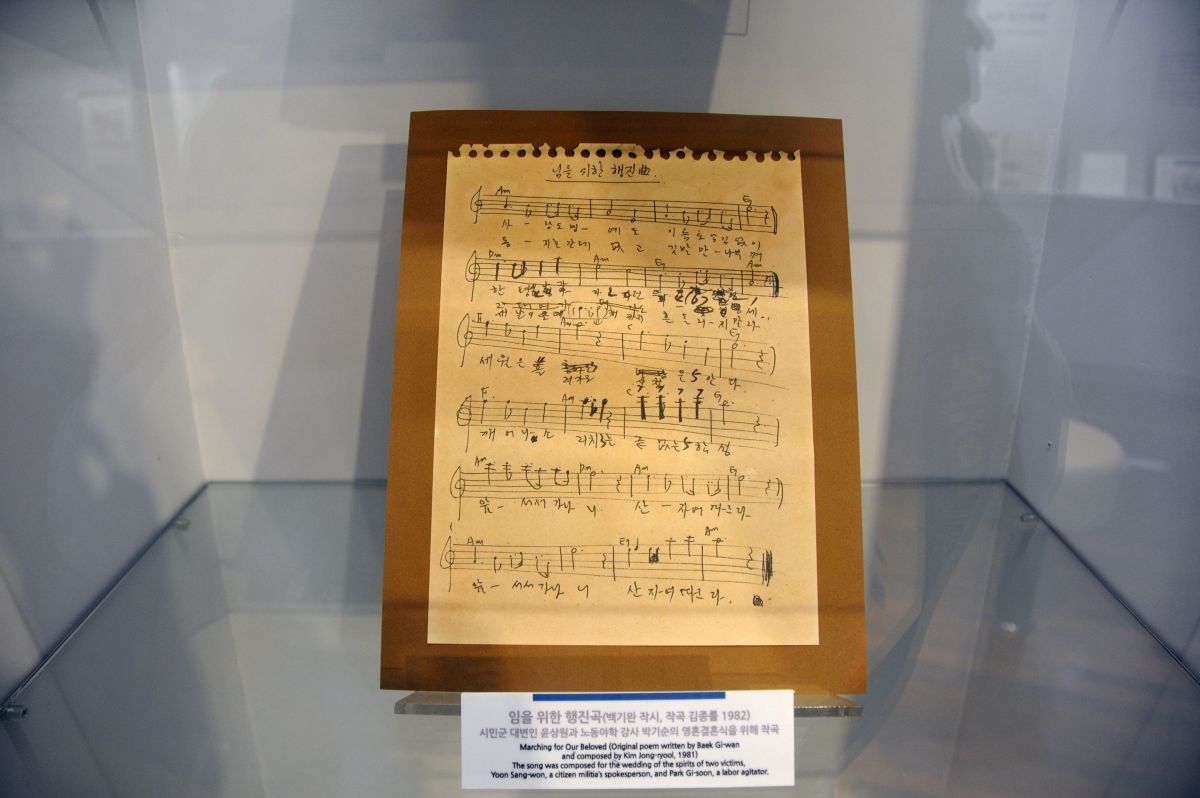 님을 위한 행진曲.
Am E7
사 - 랑도 명 - 예도 이름도 남김 없이
동 - 지는 간데 없고 깃발 만 - 나부 껴
Dm Am E7 Am
한 평생
흔 들 리 - 지 말 라
F Am C E7
세 월 은
은 안 다
F Am C E7
깨 어 나 소 리치는 끝 없는 함 성
Am Dm Am E7
앞 - 서서 가나 니 산 - 자여 따르라
Am E7 Am
앞 - 서서 가나 니 산 자여 따르 라.
임을 위한 행진곡(백기완 작시, 작곡 김종률 1982)
시민군 대변인 윤상원과 노동야학 강사 박기순의 영혼결혼식을 위해 작곡
Marching for Our Beloved (Original poem written by Baek Gi-wan
and composed by Kim Jong-ryool, 1981)
The song was composed for the wedding of the spirits of two victims,
Yoon Sang-won, a citizen militia's spokesperson, and Park Gi-soon, a labor agitator.